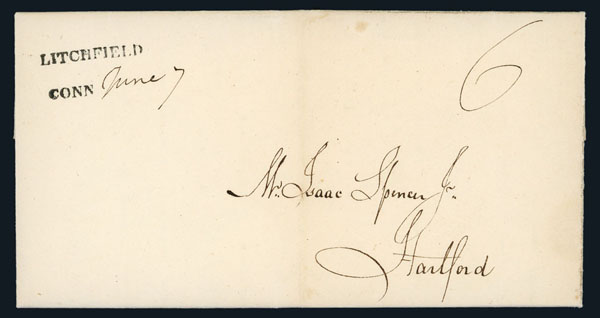 LITCHFIELD
CONN June 7
6
Mr. Isaac Spencer Jr.
Hartford